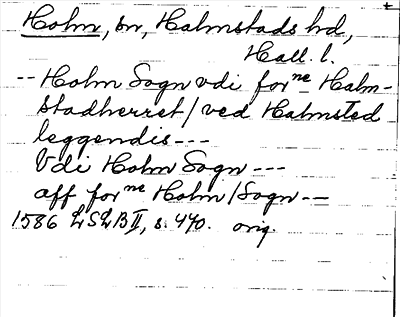 Holm, sn, Halmstads hd,
Hall. l.
-- Holm Sogn vdi forne Halm-
stadherret / ved Halmsted
leggendis ---
Vdi Holm Sogn ---
aff forne Holm / Sogn --
1586 LSLB II, s. 470. orig.